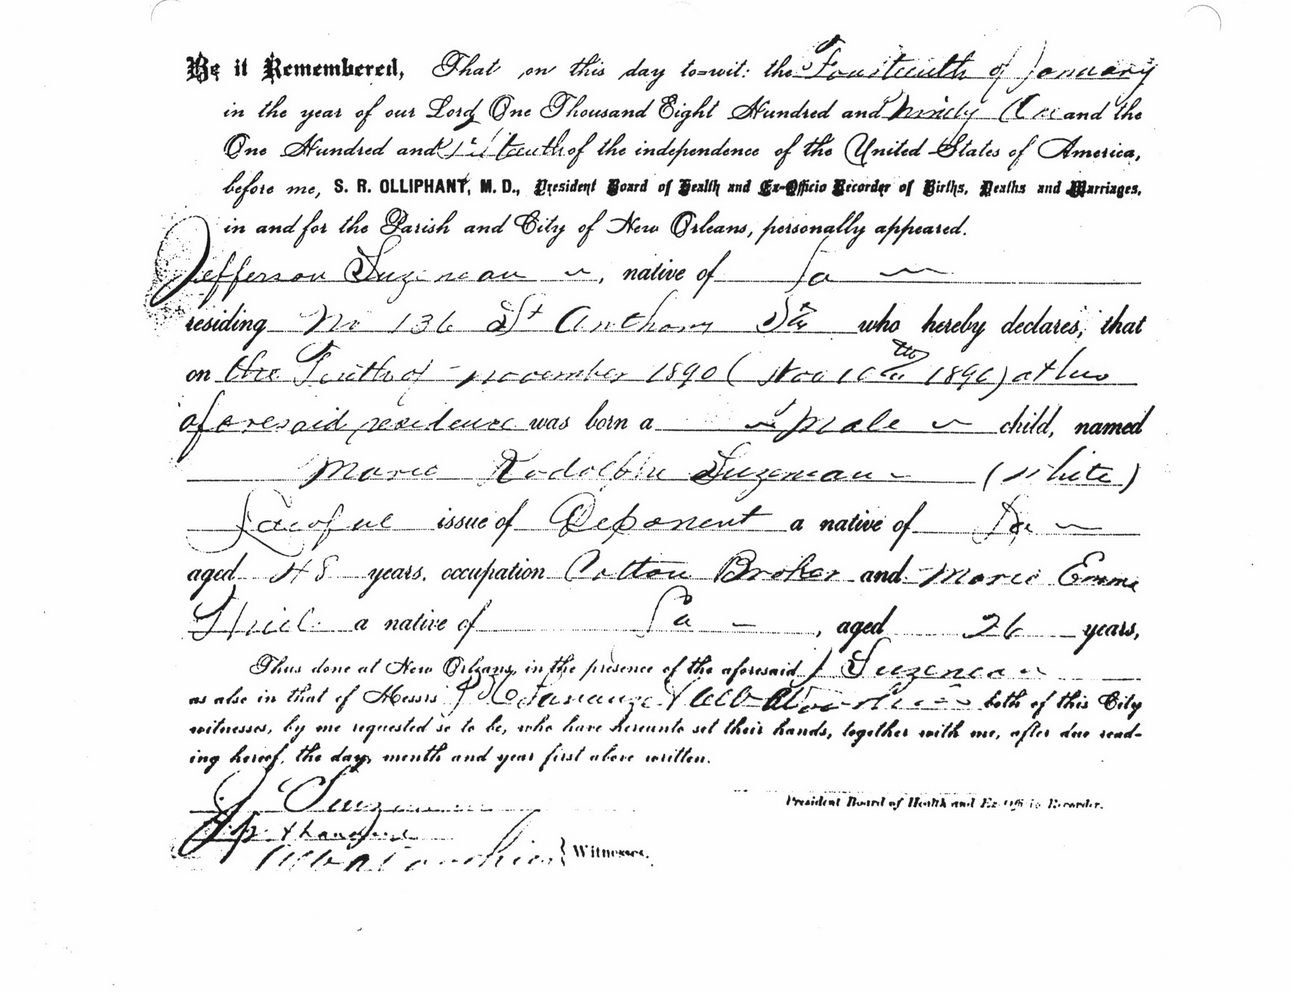 Be it Remembered, That on this day to-wit: the Fourteenth of January
in the year of our Lord One Thousand Eight Hundred and Ninety One and the
One Hundred and Fifteenth of the independence of the United States of America,
before me, S. R. OLLIPHANT, M. D., President Board of Health and Ex-Officio Recorder of Births, Deaths and Marriages,
in and for the Parish and City of New Orleans, personally appeared.
Jefferson Suzeneau, native of La
residing No 136 St Anthony Str who hereby declares, that
on the Tenth of November 1890 (Nov 10th 1890) at his
aforesaid residence was born a Male child, named
Marie Rodolphe Suzeneau (White)
Lawful issue of Deponent a native of La
aged 48 years. occupation Cotton Broker and Marie Emma
a native of La, aged 26 years,
Thus done at New Orleans, in the presence of the aforesaid J Suzeneau
as also in that of Messrs both of this City
witnesses, by me requested so to be, who have hereunto set their hands, together with me, after due read-
ing hereof, the day, month and year first above written.
J Suzeneau
President Board of Health and Ex-Officio Recorder.
Witnesses.